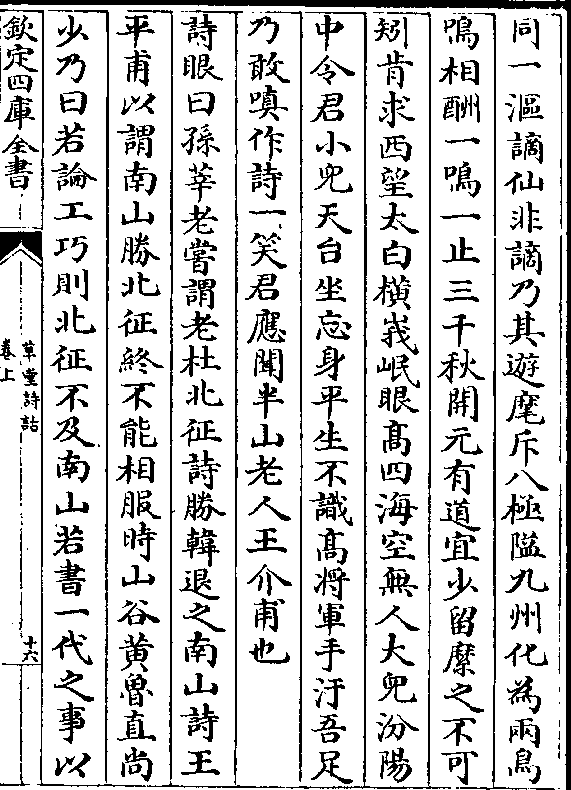 同一漚謫仙非謫乃其遊麾斥八極隘九州化為兩鳥
鳴相酬一鳴一止三千秋開元有道宜少留縻之不可
矧肯求西望太白橫峩岷眼髙四海空無人大兒汾陽
中令君小兒天台坐忘身平生不識髙將軍手汙吾足
乃敢嗔作詩一笑君應聞半山老人王介甫也
詩眼曰孫莘老嘗謂老杜北征詩勝韓退之南山詩王
平甫以謂南山勝北征終不能相服時山谷黄魯直尚
少乃曰若論工巧則北征不及南山若書一代之事以
欽定四庫全書
草堂詩話
卷上
十六